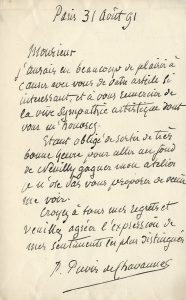 Paris 31 Août 91
Monsieur
J'aurais eu beaucoup de plaisir à
causer avec vous de votre article si
intéressant, et à vous remercier de
la vive sympathie artistique dont
vous m'honorez.
Etant obligé de sortir de très
bonne heure pour aller au fond
de Neuilly gagner mon atelier
je n'ose pas vous proposer de venir
me voir.
Croyez à tous mes regrets et
veuillez agréer l'expression de
mes sentiments les plus distingués
P. Puvis de Chavannes